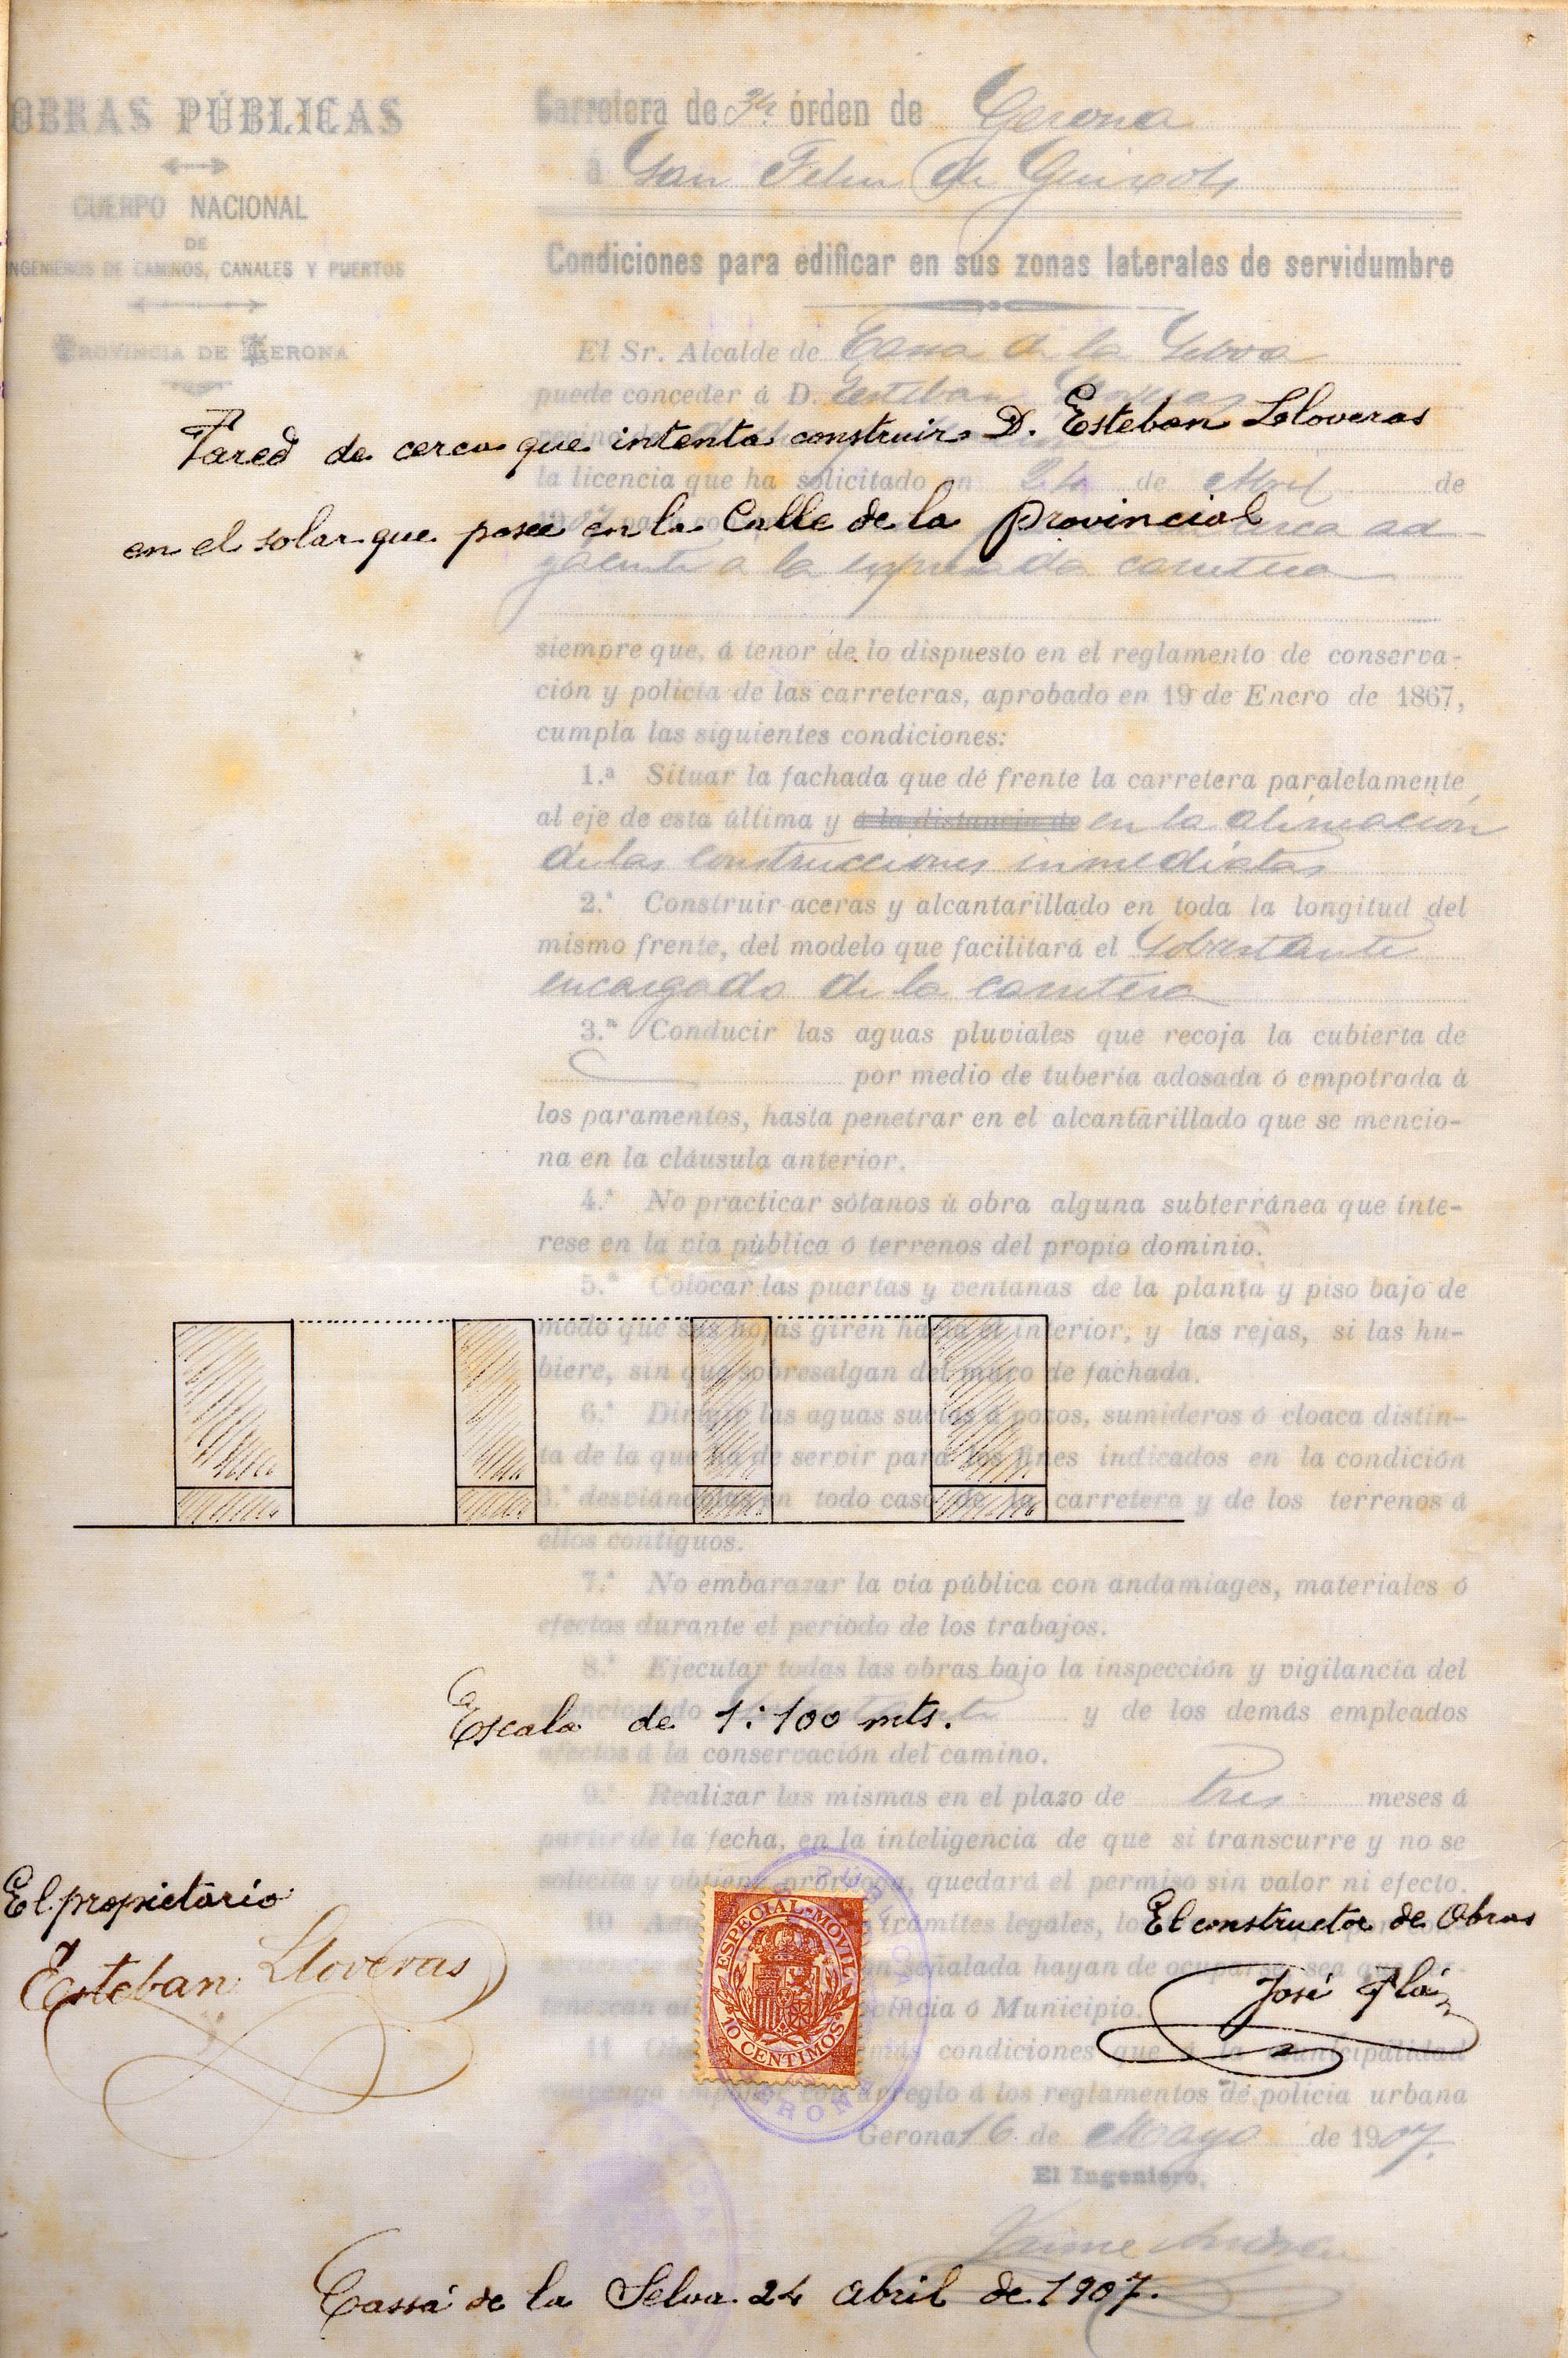 OBRAS PÚBLICAS
CUERPO NACIONAL
DE
INGENIEROS DE CAMINOS, CANALES Y PUERTOS
PROVINCIA DE GERONA
Carretera de 3er órden de Gerona
á San Feliu de Guixols
Condiciones para edificar en sus zonas laterales de servidumbre
El Sr. Alcalde de Cassa de la Selva
puede conceder á D. Esteban
Pared de cerca que intenta construir D. Esteban Lloveras
la licencia que ha solicitado en 24 de Abril de
en el solar que posee en la Calle de la Provincial
cerca ad-
yacente a la expresada carretera
siempre que, á tenor de lo dispuesto en el reglamento de conserva-
ción y policía de las carreteras, aprobado en 19 de Enero de 1867,
cumpla las siguientes condiciones:
1.ª Situar la fachada que dé frente la carretera paralelamente
al eje de esta última y á la distancia de en la alineación
de las construcciones inmediatas
2.ª Construir aceras y alcantarillado en toda la longitud del
mismo frente, del modelo que facilitará el Sobrestante
encargado de la carretera
3.ª Conducir las aguas pluviales que recoja la cubierta de
por medio de tubería adosada ó empotrada á
los paramentos, hasta penetrar en el alcantarillado que se mencio-
na en la cláusula anterior.
4.ª No practicar sótanos ú obra alguna subterránea que inte-
rese en la via pública ó terrenos del propio dominio.
5.ª Colocar las puertas y ventanas de la planta y piso bajo de
modo que sus hojas giren hacia el interior, y las rejas, si las hu-
biere, sin que sobresalgan del muro de fachada.
6.ª Dirigir las aguas sucias á pozos, sumideros ó cloaca distin-
ta de la que ha de servir para los fines indicados en la condición
3.ª desviándolas en todo caso de la carretera y de los terrenos á
ellos contiguos.
7.ª No embarazar la vía pública con andamiages, materiales ó
efectos durante el periodo de los trabajos.
8.ª Ejecutar todas las obras bajo la inspección y vigilancia del
mencionado Sobrestante y de los demás empleados
Escala de 1:100 mts.
afectos á la conservación del camino.
9.ª Realizar las mismas en el plazo de tres meses á
partir de la fecha, en la inteligencia de que si transcurre y no se
solicita y obtiene prórroga, quedará el permiso sin valor ni efecto.
El propietario
El constructor de Obras
10 trámites legales, lo
señalada hayan de ocuparse, sea
Esteban Lloveras
José Plá
ESPECIAL-MOVIL
10 CENTIMOS
ó Municipio.
11 condiciones que á la municipalidad
arreglo á los reglamentos de policía urbana
GERONA
Gerona 16 de Mayo de 1907.
El Ingeniero,
Jaime
Cassá de la Selva 24 Abril de 1907.